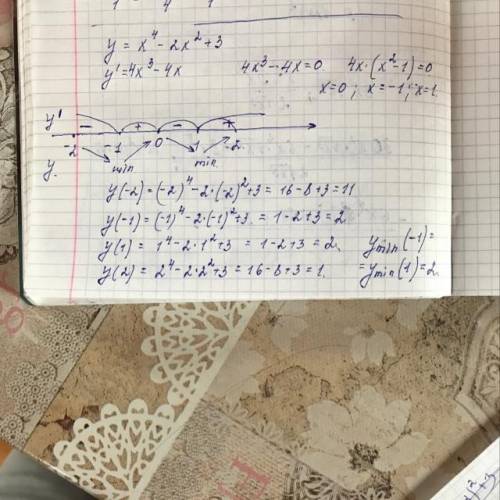 1 4 1
y = x⁴ - 2x² + 3
y' = 4x³ - 4x 4x³ - 4x = 0 4x·(x² - 1) = 0
x = 0 ; x = -1 ; x = 1.
y' - + - +
-2 -1 0 1 2
y. min min
y(-2) = (-2)⁴ - 2·(-2)² + 3 = 16 - 8 + 3 = 11
y(-1) = (-1)⁴ - 2·(-1)² + 3 = 1 - 2 + 3 = 2
y(1) = 1⁴ - 2·1² + 3 = 1 - 2 + 3 = 2. y min (-1) =
y(2) = 2⁴ - 2·2² + 3 = 16 - 8 + 3 = 1. = y min (1) = 2.